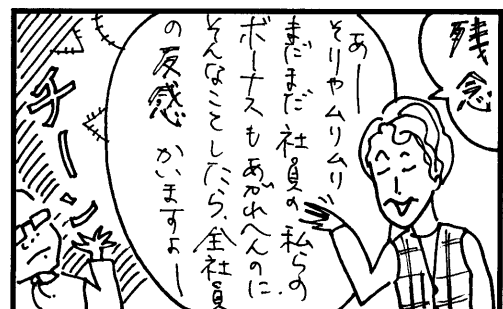 残念
あー
そりゃムリムリ
まだまだ社員の私らの
ボーナスもあがれへんのに
そんなことしたら、全社員
の反感かいますよー
チーン